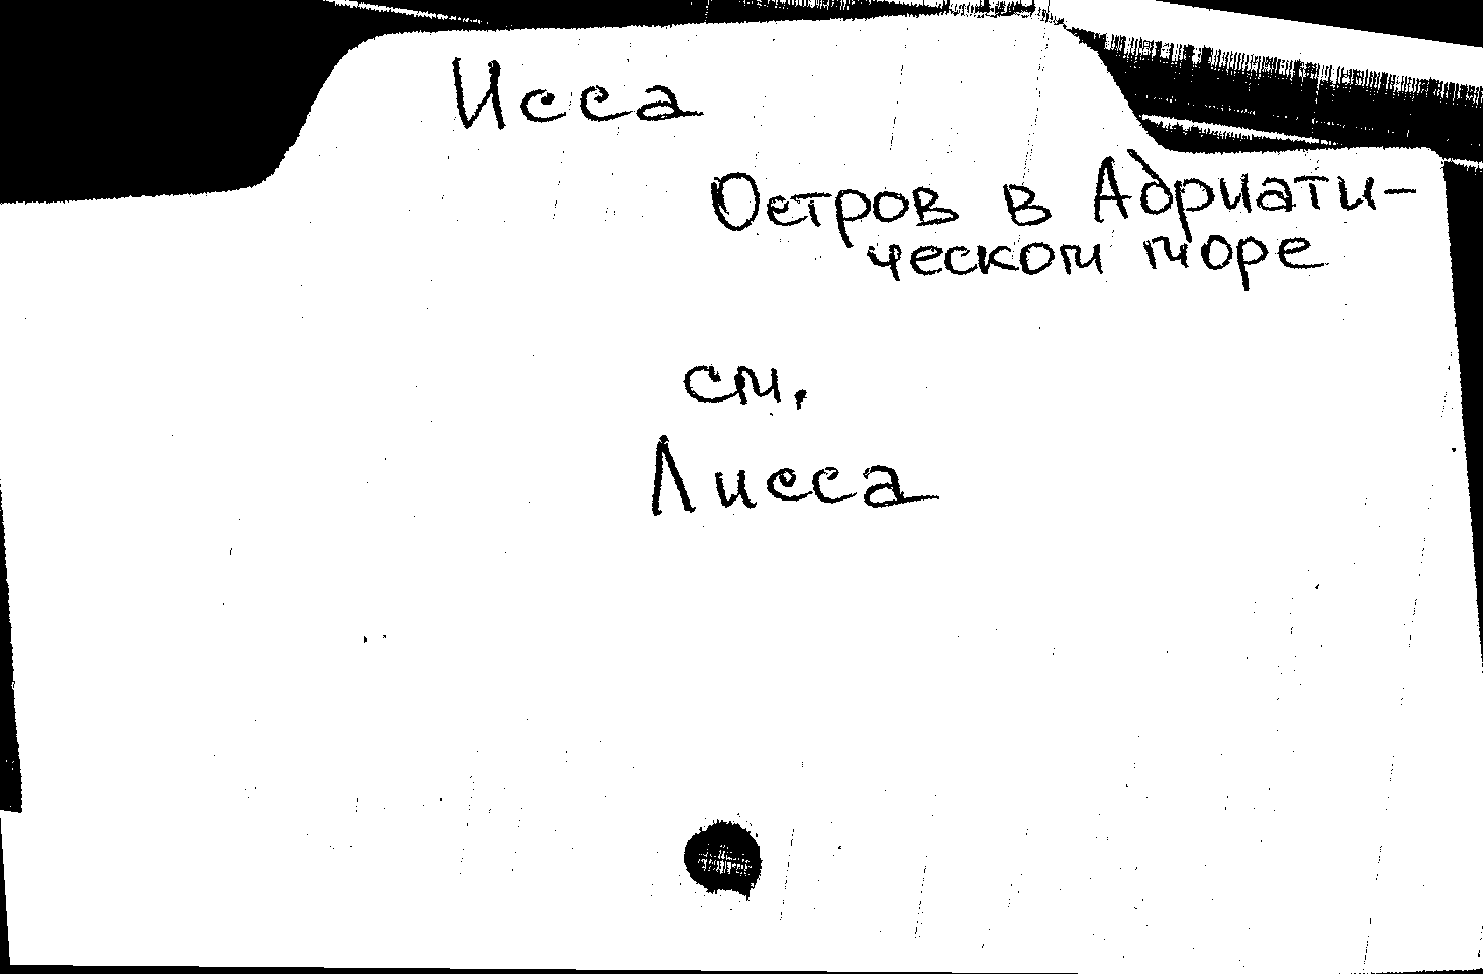 Исса
Остров в Адриати-
ческом море
см.
Лисса